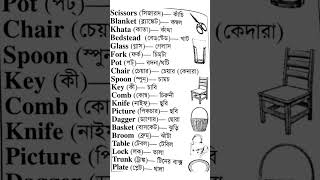 Scissors (সিজারস)— কাঁচি
Blanket (ব্ল্যাঙ্কেট)— কম্বল
Khata (কাতা)— কাঁথা
Bedstead (বেডস্টেড)— খাট
Glass (গ্লাস)— গেলাস
Fork (ফর্ক)— চিমটা
Pot (পট)— বদনা/ঘটি
Chair (চেয়ার)— চেয়ার (কেদারা)
Spoon (স্পুন)— চামচ
Key (কী)— চাবি
Comb (কোম্ব)— চিরুনী
Knife (নাইফ)— ছুরি
Picture (পিকচার)— ছবি
Dagger (ড্যাগার)— ছোরা
Basket (বাসকেট)— ঝুড়ি
Broom (ব্রুম)— ঝাঁটা
Table (টেবল)— টেবিল
Lock (লক)— তালা
Trunk (ট্রাঙ্ক)— টিনের বাক্স
Plate (প্লেট)— থালা